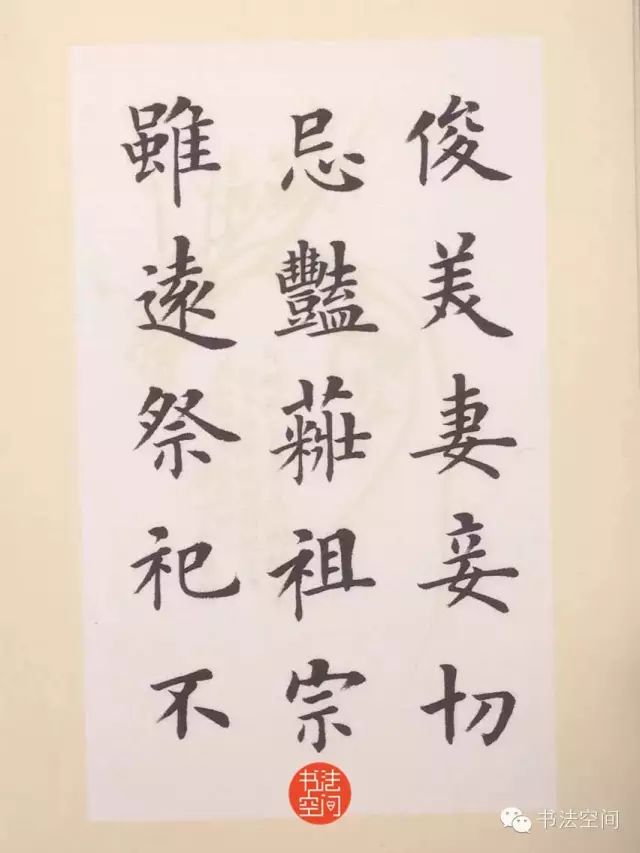 俊美妻妾切
忌豔糚祖宗
雖遠祭祀不
书法空间
书法空间